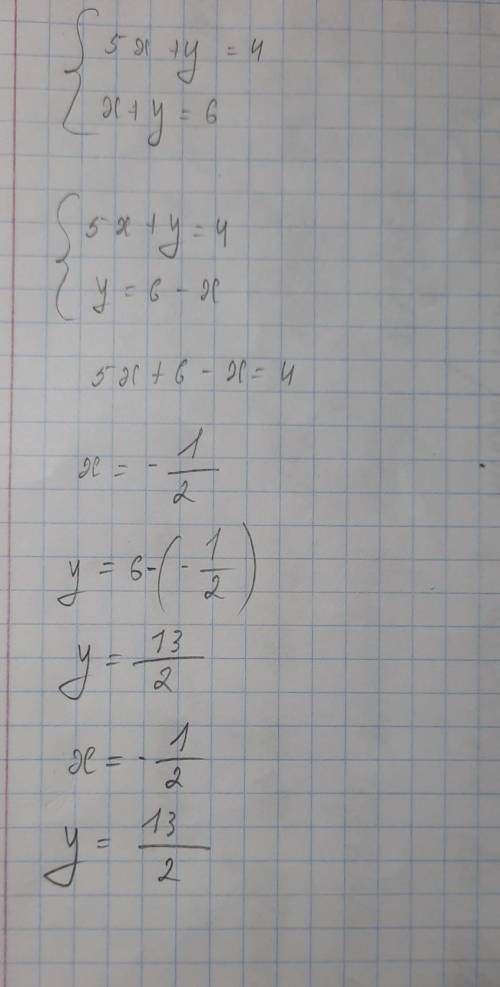 { 5x + y = 4
x + y = 6
{ 5x + y = 4
y = 6 - x
5x + 6 - x = 4
x = - 1/2
y = 6 - (- 1/2)
y = 13/2
x = - 1/2
y = 13/2